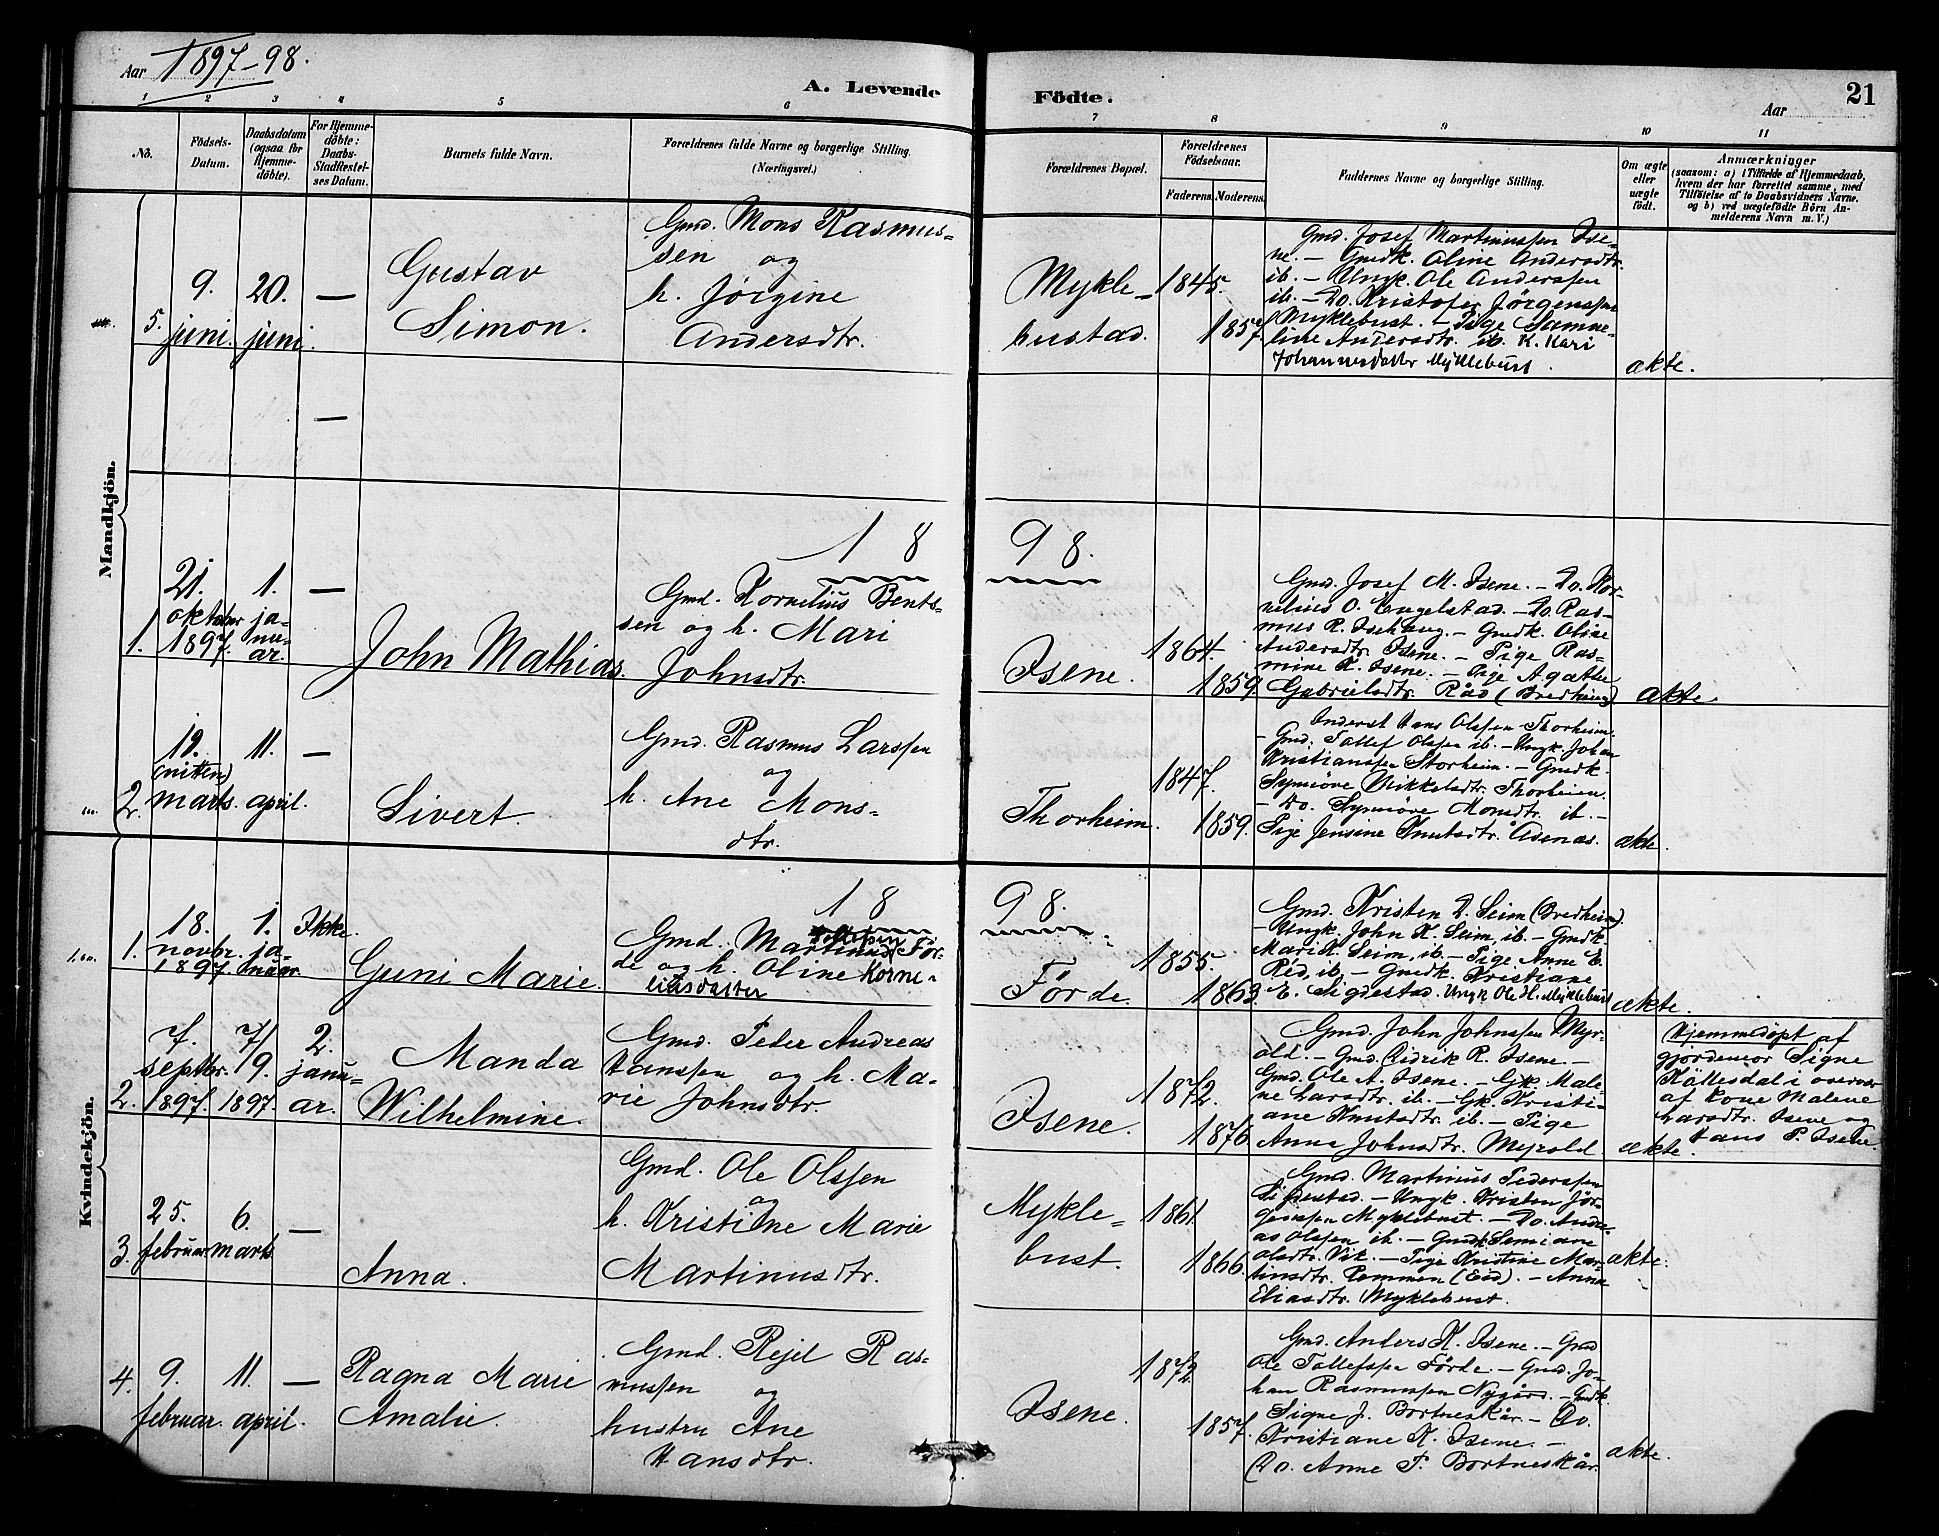 Aar 1897-98.
A. Levende Födte.
Aar
21
1 2 3 4 5 6 7 8 9 10 11
No.
Födsels-
Datum.
Daabsdatum
(ogsaa for
Hjemme-
döbte).
For Hjemme-
döbte:
Daabs-
Stadfæstel-
ses Datum.
Barnets fulde Navn.
Forældrenes fulde Navne og borgerlige Stilling.
(Næringsvei.)
Forældrenes Bopæl.
Forældrenes
Födselsaar.
Faderens.
Moderens.
Faddernes Navne og borgerlige Stilling.
Om ægte
eller
uægte
födt.
Anmærkninger
(saasom: a) i Tilfælde af Hjemmedaab,
hvem der har forrettet samme, med
Tilföielse af to Daabsvidners Navne.
og b) ved uægtefödte Börn An-
melderens Navn m. V.)
Mandkjön.
5.
9.
juni.
20.
juni.
—
Gustav
Simon.
Gmd. Mons Rasmus-
sen og
h. Jørgine
Andersdtr.
Mykle-
bustad.
1845.
1857.
Gmd. Josef Martinussen Ise-
ne. — Gmdk. Oline Andersdtr.
ib. — Ungk. Ole Anderssen
ib. — Do. Kristofer Jørgenssen
Myklebust. — Pige Samue-
line Andersdtr. ib. K. Kari
Johannesdatter Myklebust.
ækte.
—
1898.
1.
21.
oktober
1897.
1.
ja-
nu-
ar.
—
John Mathias.
Gmd. Kornelius Bents-
sen og h. Mari
Johnsdtr.
Isene.
1864.
1859.
Gmd. Josef M. Isene. — Do. Kor-
nelius O. Engelstad. — Do. Ras-
mus R. Isehaug. — Gmdk. Oline
Andersdtr. Isene. — Pige Ras-
mine K. Isene. — Pige Agathe
Gabrielsdtr. Råd (Bredheim)
ækte.
2.
19.
(nitten)
marts.
11.
april.
—
Sivert.
Gmd. Rasmus Larssen
og
h. Ane Mons-
dtr.
Thorheim.
1847.
1859.
Hans Olssen Thorheim.
— Gmd. Tollef Olssen ib. — Ungk. Johan
Kristianssen Storheim. — Gmdk.
Synnöve Mikkelsdtr. Thorheim.
— Do. Synnöve Monsdtr. ib. —
Pige Jensine Knutsdtr. Åsenæs.
ækte.
Kvindekjön.
1898.
1.
18.
novbr.
1897
1.
ja-
nuar.
Ikke.
Guni Marie.
Gmd. Martinus För-
de og h. Oline Korne-
liusdatter
Förde.
1855.
1863.
Gmd. Kristen D. Seim (Bredheim).
— Ungk. John K. Seim, ib. — Gmdk.
Mari K. Seim, ib. — Pige Anne E.
Réd, ib. — Gmdk. Kristiane
E. Sigdestad. Ungk Ole H. Myklebust
ækte.
2.
7.
septbr.
1897.
7/
19.
1897.
2.
janu-
ar.
Manda
Wilhelmine.
Gmd. Peter Andreas
Hanssen og h. Ma-
rie Johnsdtr.
Isene.
1872.
1876.
Gmd. John Johnssen Myr-
old. — Gmd. Didrik R. Isene. —
Gmd. Ole A. Isene. — Gk. Male-
ne Larsdtr. ib. — Gk. Kristi-
ane Knutsdtr. ib. — Pige
Anna Johnsdtr. Myrold.
ækte.
Hjemmedöpt af
gjordemor Signe
Källesdal i overvær
af kone Malene
Larsdtr. Isene og
Hans P. Isene.
3.
25.
februar.
6.
marts.
—
Anna.
Gmd. Ole Olssen
og
h. Kristine Marie
Martinusdtr.
Mykle-
bust.
1861.
1866.
Gmd. Martinus Pederssen
Sigdestad. — Ungk. Kristen Jör-
genssen Myklebust. — Do. Andre-
as Olssen ib. — Gmdk. Semiane
Olsdtr. Vik. — Pige Kristine Mar-
tinsdtr. Lommen (Eid). — Anna
Eliasdtr. Myklebust.
ækte.
4.
9.
februar.
11.
april.
—
Ragna Marie
Amalie.
Gmd. Rejel Ras-
mussen og
hustru Ane
Hansdtr.
Isene.
1872.
1857.
Gmd. Anders K. Isene. — Gmd
Ole Tollefssen Förde. — Gmd. Jo-
han Rasmussen Nygård. — Gmdk.
Signe J. Bortneskår. — Do.
Kristiane K. Isene. —
Do. Anne P. Bortneskår.
ækte.